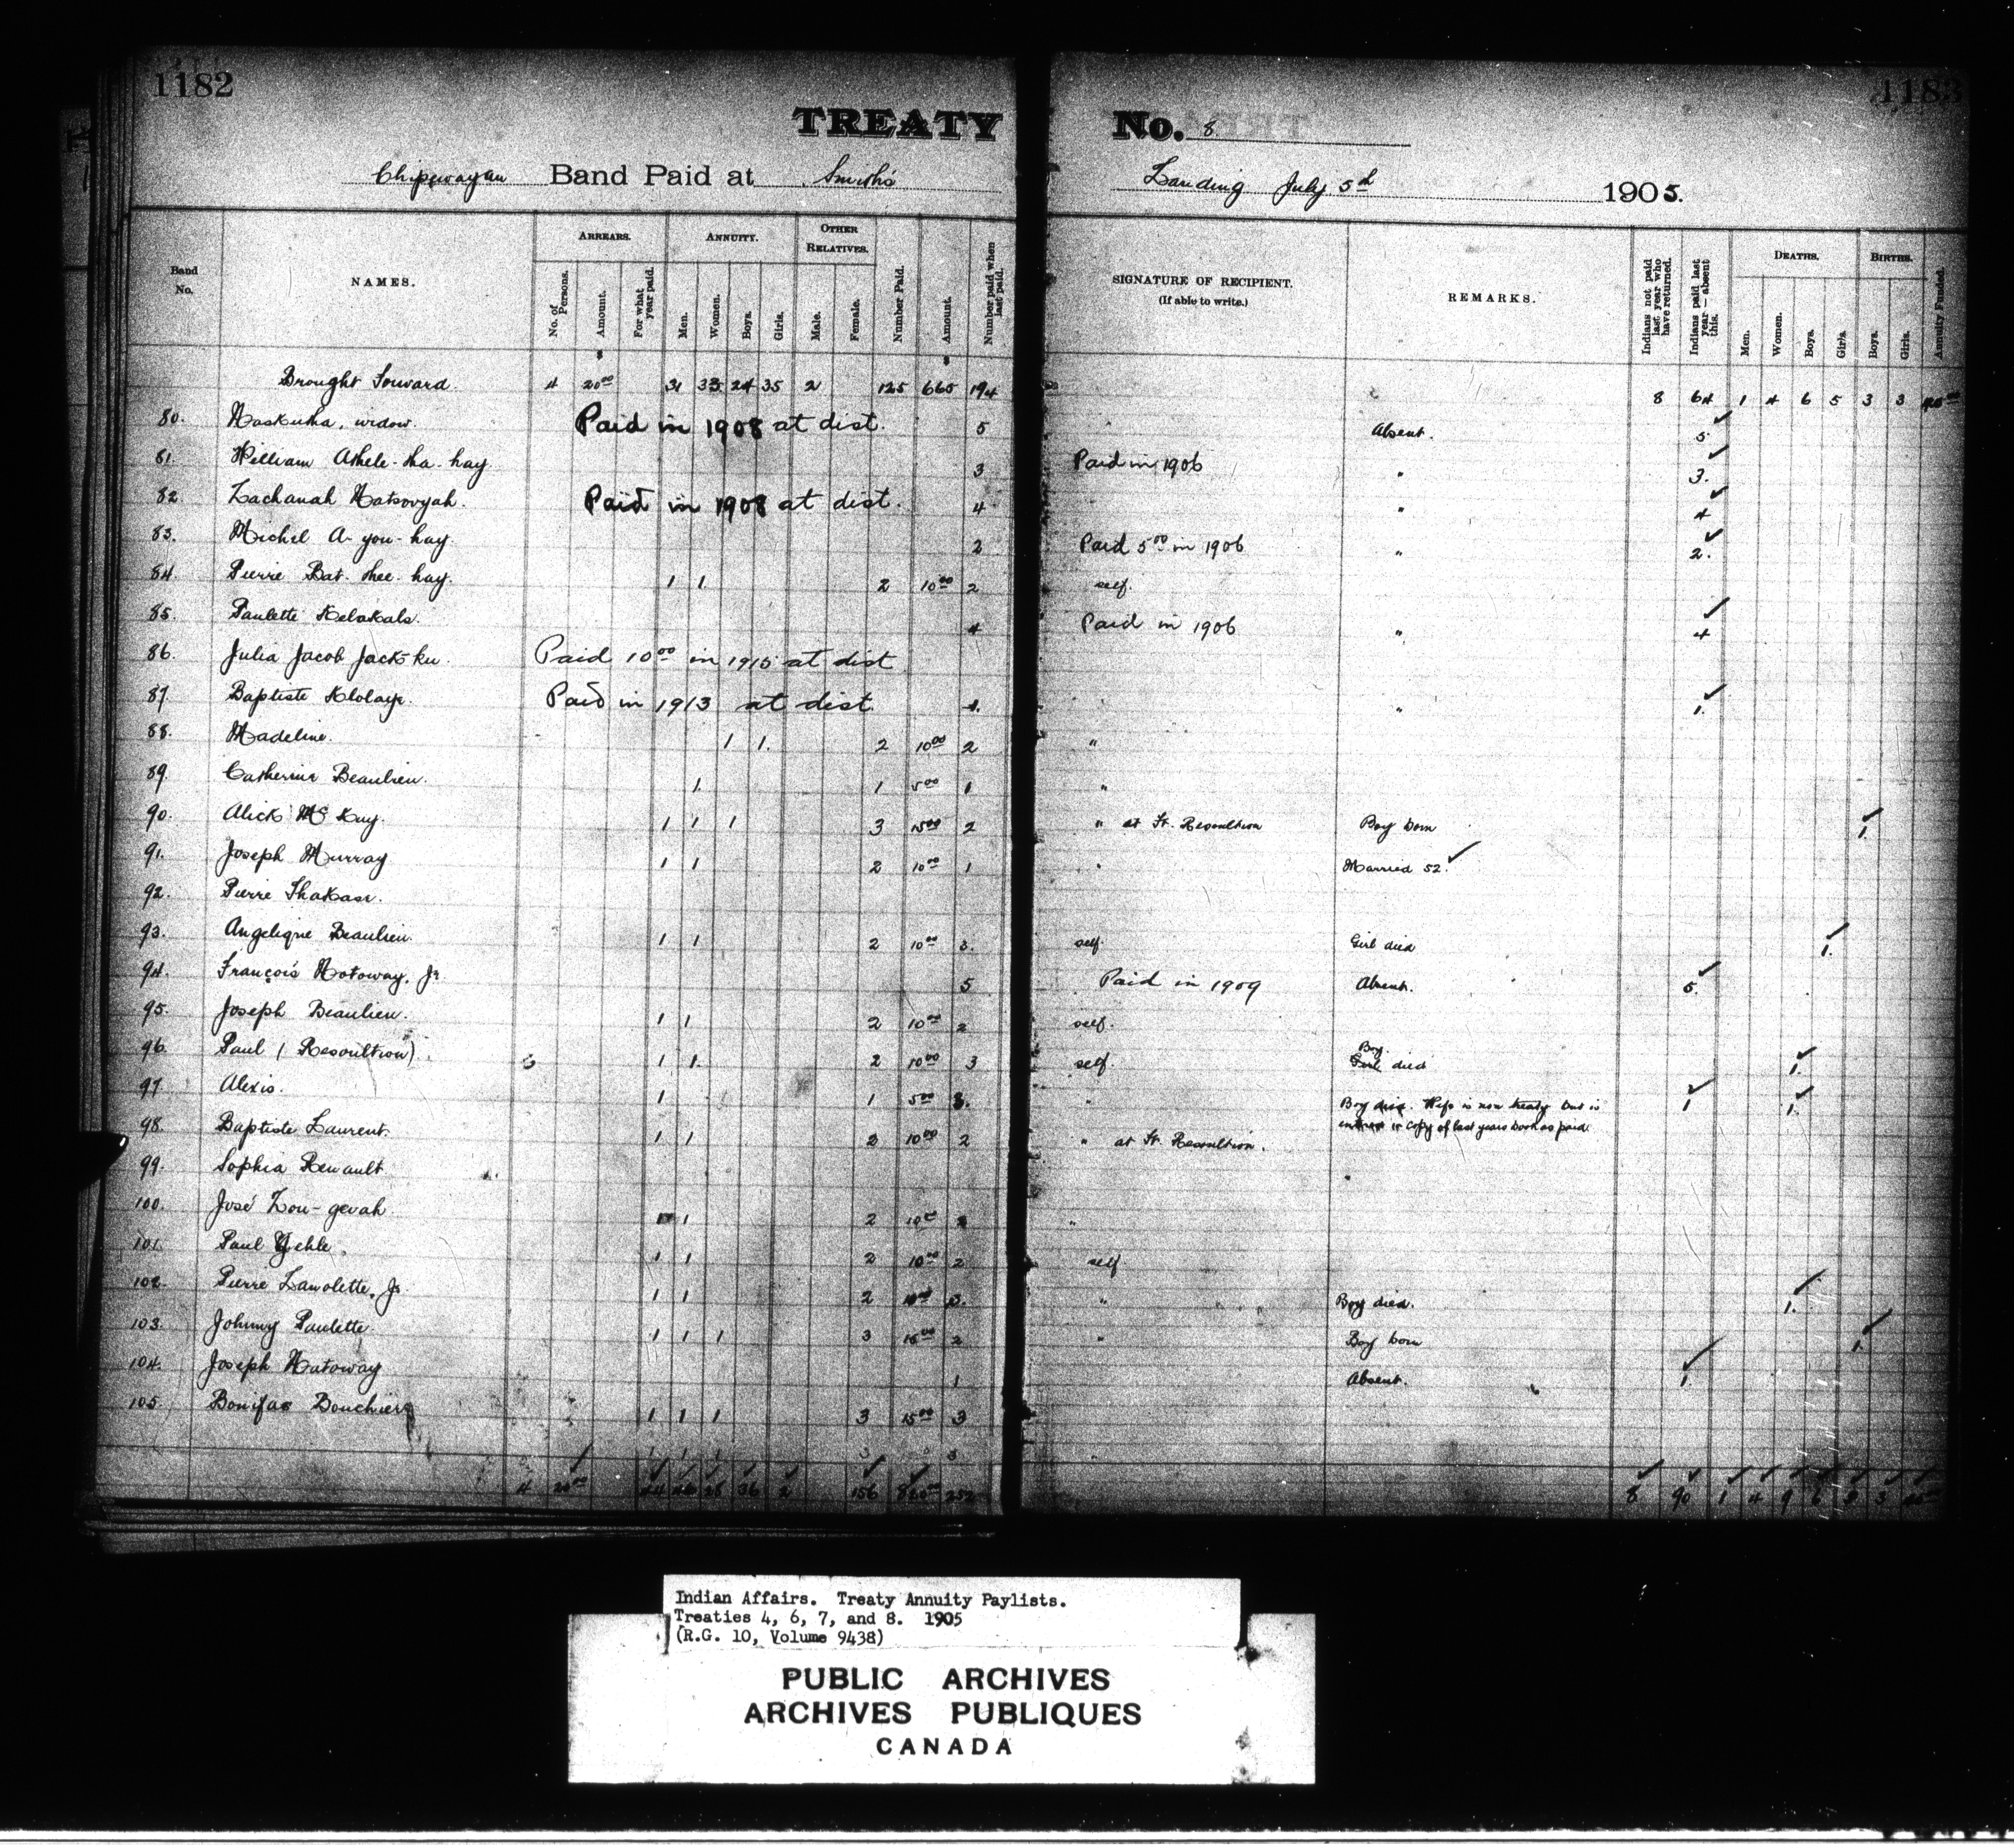 1182
1183
TREATY No. 8
Chipewayan Band Paid at Smith's Landing July 5th 1905.
Band No.
NAMES.
ARREARS.
No. of Persons.
Amount.
For what year paid.
ANNUITY.
Men.
Women.
Boys.
Girls.
OTHER RELATIVES.
Male.
Female.
Number Paid.
Amount.
Number paid when last paid.
SIGNATURE OF RECIPIENT.
(If able to write.)
REMARKS.
Indians not paid last year who have returned.
Indians paid last year — absent this.
DEATHS.
Men.
Women.
Boys.
Girls.
BIRTHS.
Boys.
Girls.
Annuity Funded.
Brought Forward 4 20 00 31 33 24 35 2 125 665 194 8 64 1 4 6 5 3 3
80. widow. Paid in 1908 at dist. 5 Absent. 5
81. William Athele-tha-hay 3 Paid in 1906 " 3.
82. Paid in 1908 at dist. 4 " 4
83. Michel A-you-hay 2 Paid 5 00 in 1906 " 2.
84. Pierre Bat-thee-hay. 1 1 2 10 00 2 self.
85. Paulette 4 Paid in 1906 " 4
86. Julia Jacob Paid 10 00 in 1915 at dist
87. Baptiste Paid in 1913 at dist. 1. " 1.
88. Madeline. 1 1. 2 10 00 2 "
89. Catherine Beaulieu. 1. 1 5 00 1 "
90. Alick McKay. 1 1 1 3 15 00 2 " at Ft. Resoultion Boy born 1.
91. Joseph Murray 1 1 2 10 00 1 " Married 52.
92. Pierre
93. Angelique Beaulieu. 1 1 2 10 00 3. self. Girl died 1.
94. François Natoway, Jr. 5 Paid in 1909 Absent. 5.
95. Joseph Beaulieu. 1 1 2 10 00 2 self.
96. Paul (Resoultion) 1 1. 2 10 00 3 self. Boy Girl died 1.
97. Alexis. 1 1 5 00 3. " Boy died. Wife is non treaty but is 1 1.
entered in copy of last years book as paid.
98. Baptiste Laurent. 1 1 2 10 00 2 " at Ft. Resoultion.
99. Sophia Renault
100. José 1 2 10 00 2 "
101. Paul 1 1 2 10 00 2 self
102. Pierre Jr. 1 1 2 3. " Boy died. 1.
103. Johnny Paulette 1 1 1 3 15 00 2 " Boy born 1.
104. Joseph Natoway 1 Absent. 1.
105. Bonifac 1 1 1 3 15 00 3
4 20 00 36 2 156 252 8 90 1 4 9 6 3
Indian Affairs. Treaty Annuity Paylists.
Treaties 4, 6, 7, and 8. 1905
(R.G. 10, Volume 9438)
PUBLIC ARCHIVES
ARCHIVES PUBLIQUES
CANADA